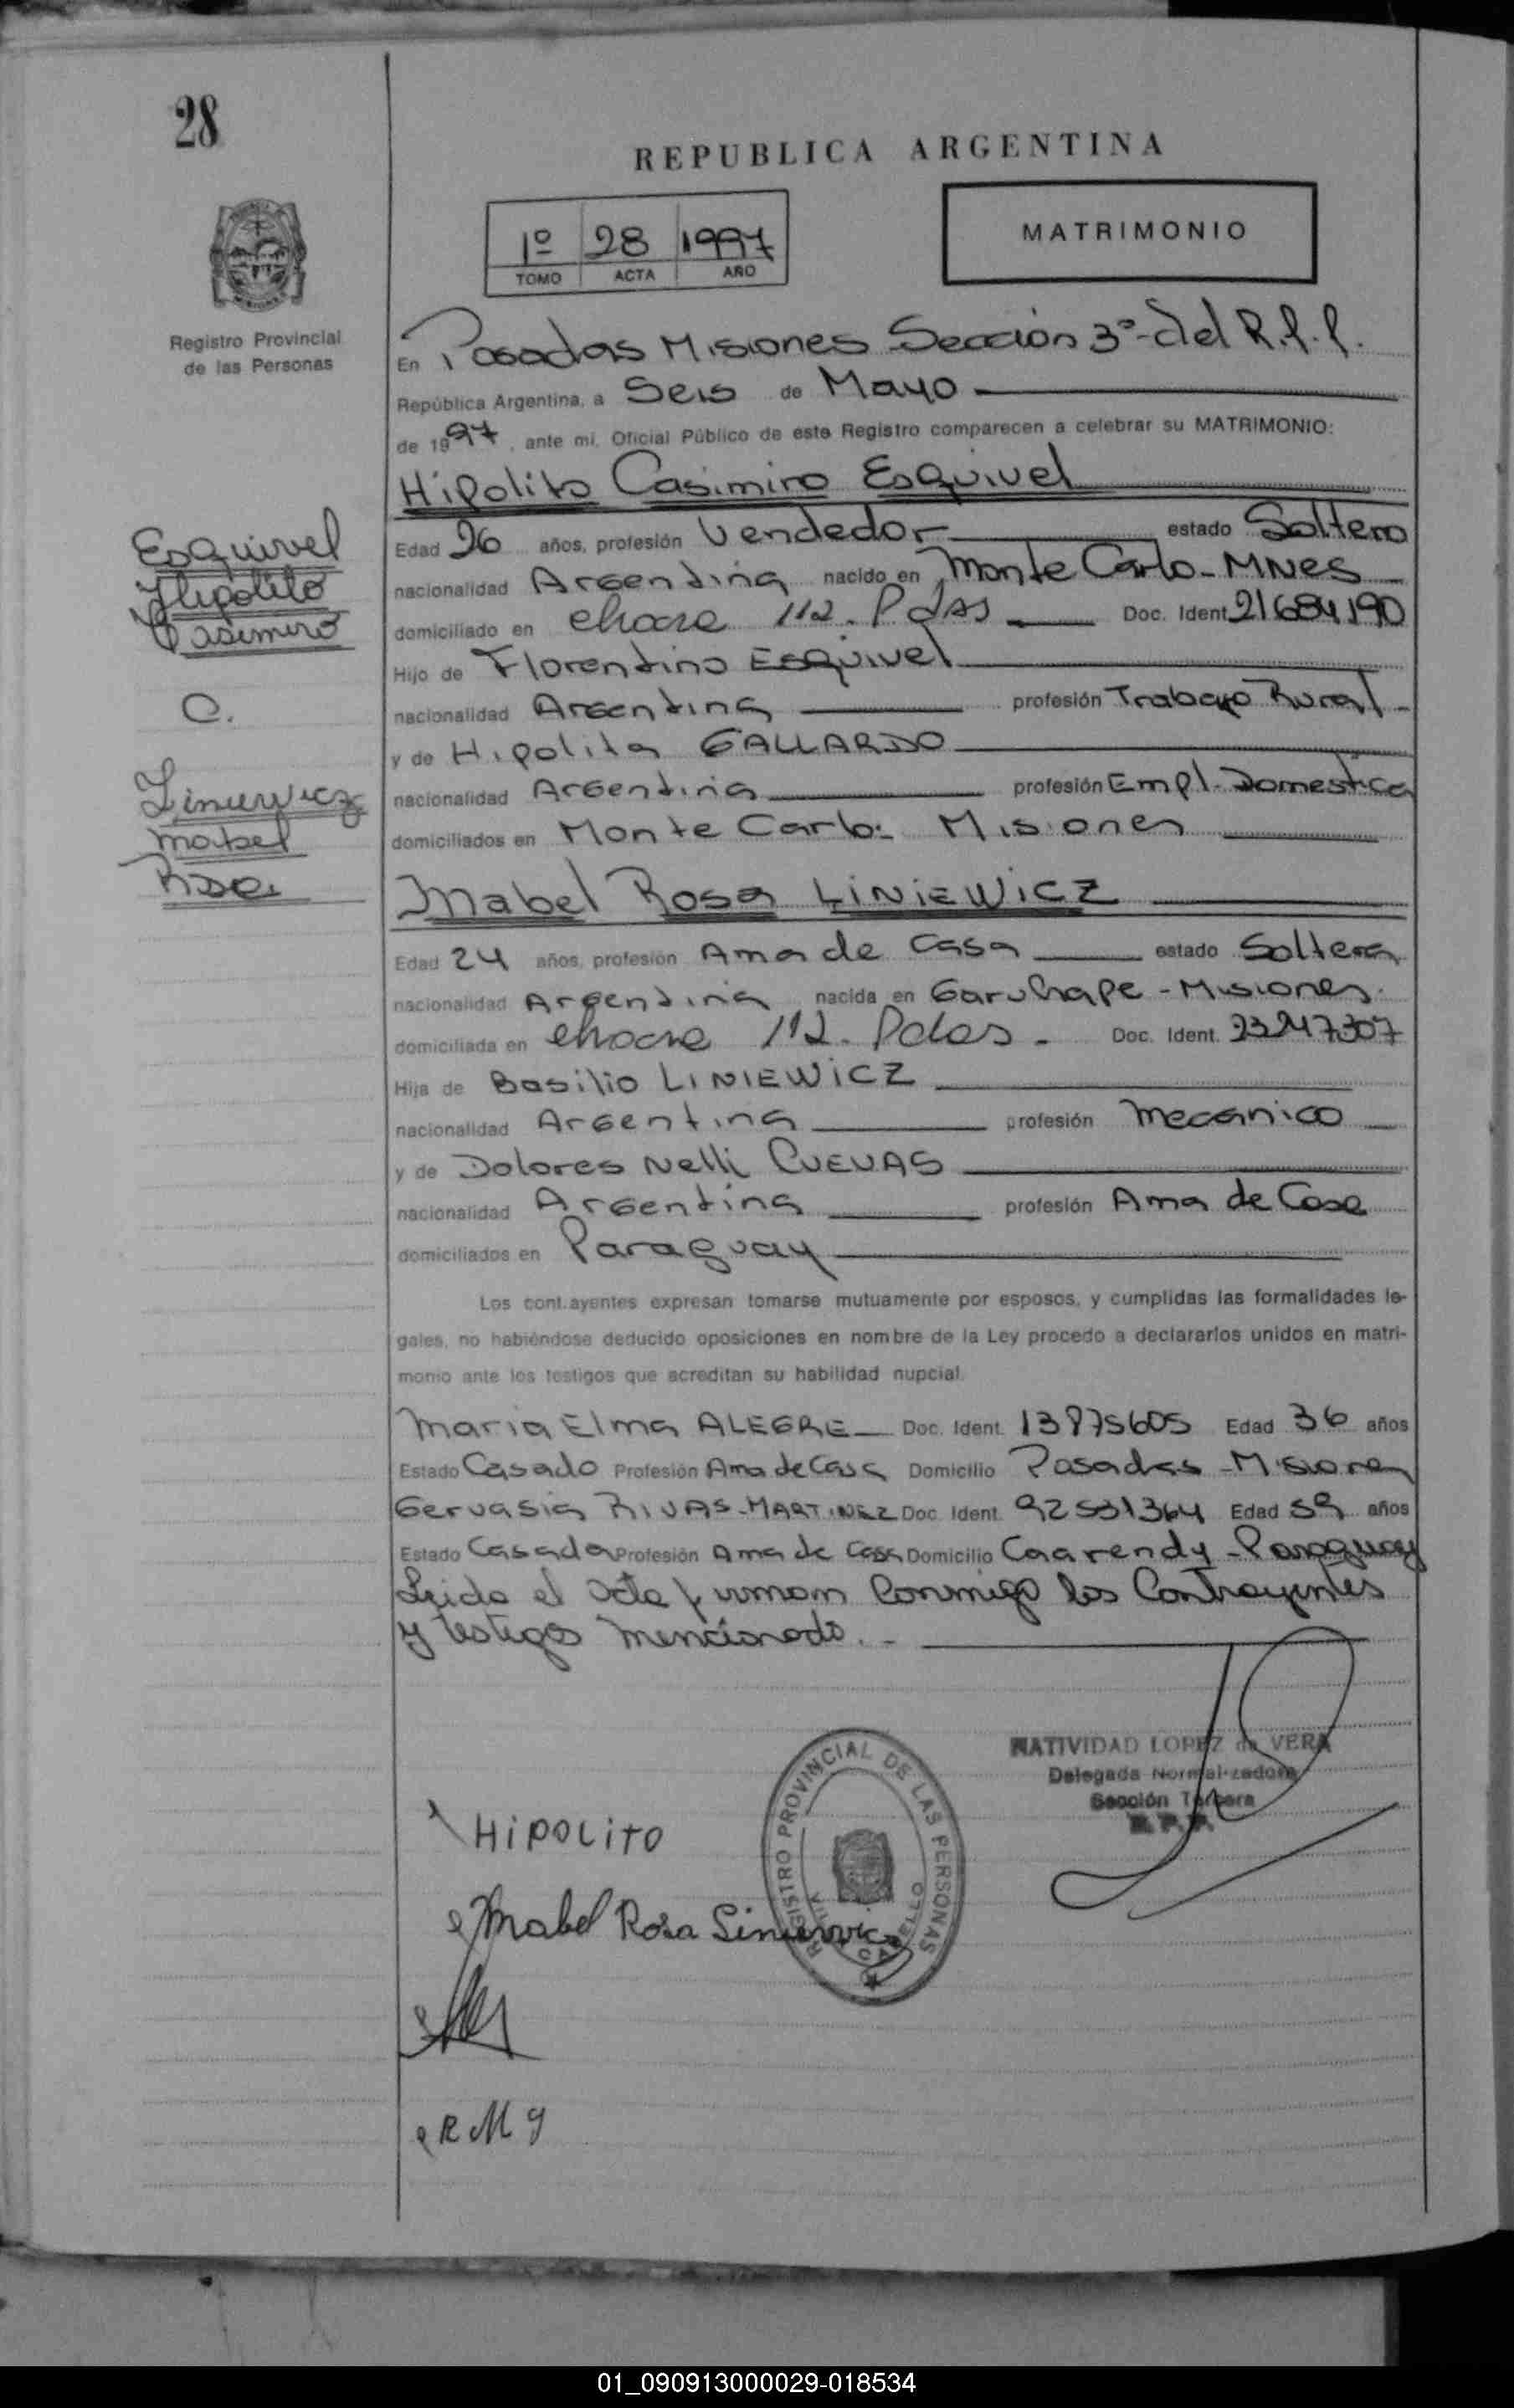 28
REPUBLICA ARGENTINA
1º 28 1997
TOMO ACTA AÑO
MATRIMONIO
Registro Provincial
de las Personas
En Posadas Misiones Sección 3ª del R.P.P.
República Argentina, a Seis de Mayo
de 1997, ante mi, Oficial Público de este Registro comparecen a celebrar su MATRIMONIO:
Hipolito Casimiro Esquivel
Edad 26 años, profesión Vendedor estado Soltero
nacionalidad Argentina nacido en Monte Carlo - MNES
domiciliado en chacra 112. Pdas Doc. Ident. 21684190
Hijo de Florentino Esquivel
nacionalidad Argentina profesión Trabajo Rural
y de Hipolita GALLARDO
nacionalidad Argentina profesión Empl. Domestica
domiciliados en Monte Carlo - Misiones
Esquivel
Hipolito
Casimiro
C.
Liniewicz
Mabel
Rosa
Mabel Rosa LINIEWICZ
Edad 24 años, profesión Ama de Casa estado Soltera
nacionalidad Argentina nacida en Garuhape - Misiones.
domiciliada en chacra 112. Pdas - Doc. Ident. 23247307
Hija de Basilio LINIEWICZ
nacionalidad Argentina profesión Mecanico
y de Dolores Nelli CUEVAS
nacionalidad Argentina profesión Ama de Casa
domiciliados en Paraguay
Los contrayentes expresan tomarse mutuamente por esposos, y cumplidas las formalidades le-
gales, no habiéndose deducido oposiciones en nombre de la Ley procedo a declararlos unidos en matri-
monio ante los testigos que acreditan su habilidad nupcial.
Maria Elma ALEGRE Doc. Ident. 13875605 Edad 36 años
Estado Casado Profesión Ama de Casa Domicilio Posadas - Misiones
Gervasia RIVAS-MARTINEZ Doc. Ident. 92531364 Edad 59 años
Estado Casada Profesión Ama de Casa Domicilio Caarendy - Paraguay
Leida el acta firman conmigo los Contrayentes
y testigos mencionado. -
NATIVIDAD LOPEZ de VERA
Delegada Normalizadora
Sección Tercera
R.P.P.
REGISTRO PROVINCIAL DE LAS PERSONAS
CABELLO
HIPOLITO
Mabel Rosa Liniewicz
R M G
01_090913000029-018534